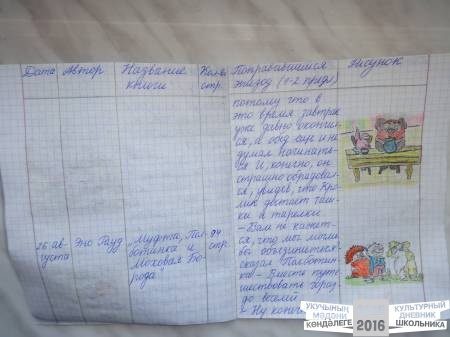 Дата Автор Название книги Кол-во стр. Понравившийся эпизод (1-2 предл) Рисунок
потому что в
это время завтрак
уже давно окончил-
ся, а обед еще и не
думал начинать-
ся. И, конечно, он
страшно обрадовал-
ся, увидев, что Кро-
лик достает чаш-
ки и тарелки
26 ав-
густа
Эно Рауд
"Муфта, Пол-
ботинка и
Моховая Бо-
рода"
94
стр.
- Вам не кажет-
ся, что мы могли
бы объединиться
сказал Полботин-
ка - Вместе путе-
шествовать гораз-
до веселей
- Ну конеч
УКУЧЫНЫҢ
МӘДӘНИ
КӨНДӘЛЕГЕ
2016
КУЛЬТУРНЫЙ
ДНЕВНИК
ШКОЛЬНИКА